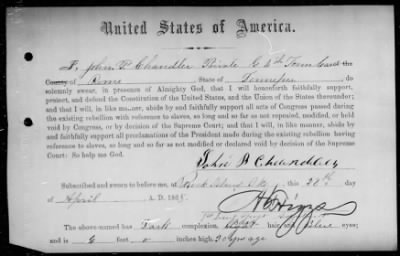 United States of America.
I, John P Chandler Private G 4th Tenn Cav of the
County of Rome State of Tennessee, do
solemnly swear, in presence of Almighty God, that I will henceforth faithfully support,
protect, and defend the Constitution of the United States, and the Union of the States thereunder;
and that I will, in like manner, abide by and faithfully support all acts of Congress passed during
the existing rebellion with reference to slaves, so long and so far as not repealed, modified, or held
void by Congress, or by decision of the Supreme Court; and that I will, in like manner, abide by
and faithfully support all proclamations of the President made during the existing rebellion having
reference to slaves, so long and so far as not modified or declared void by decision of the Supreme
Court: So help me God.
John P Chandler
Subscribed and sworn to before me, at Rock Island Ills, this 28th day
of April A. D. 186
The above-named has Dark complexion, hair, and Blue eyes;
and is 6 feet 0 inches high. 30 yrs age